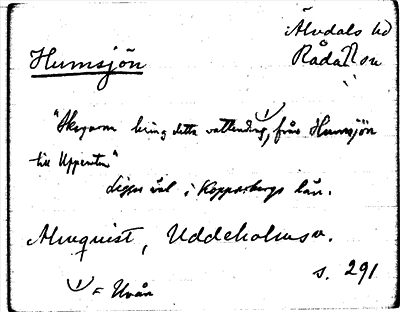 Älvdals hd
Humsjön
Råda sn
"Skogarna kring detta vattendrag, från Humsjön
till Uppenten"
Ligger väl i Kopparbergs län.
Almquist, Uddeholms a.
s. 291
1) = Uvån